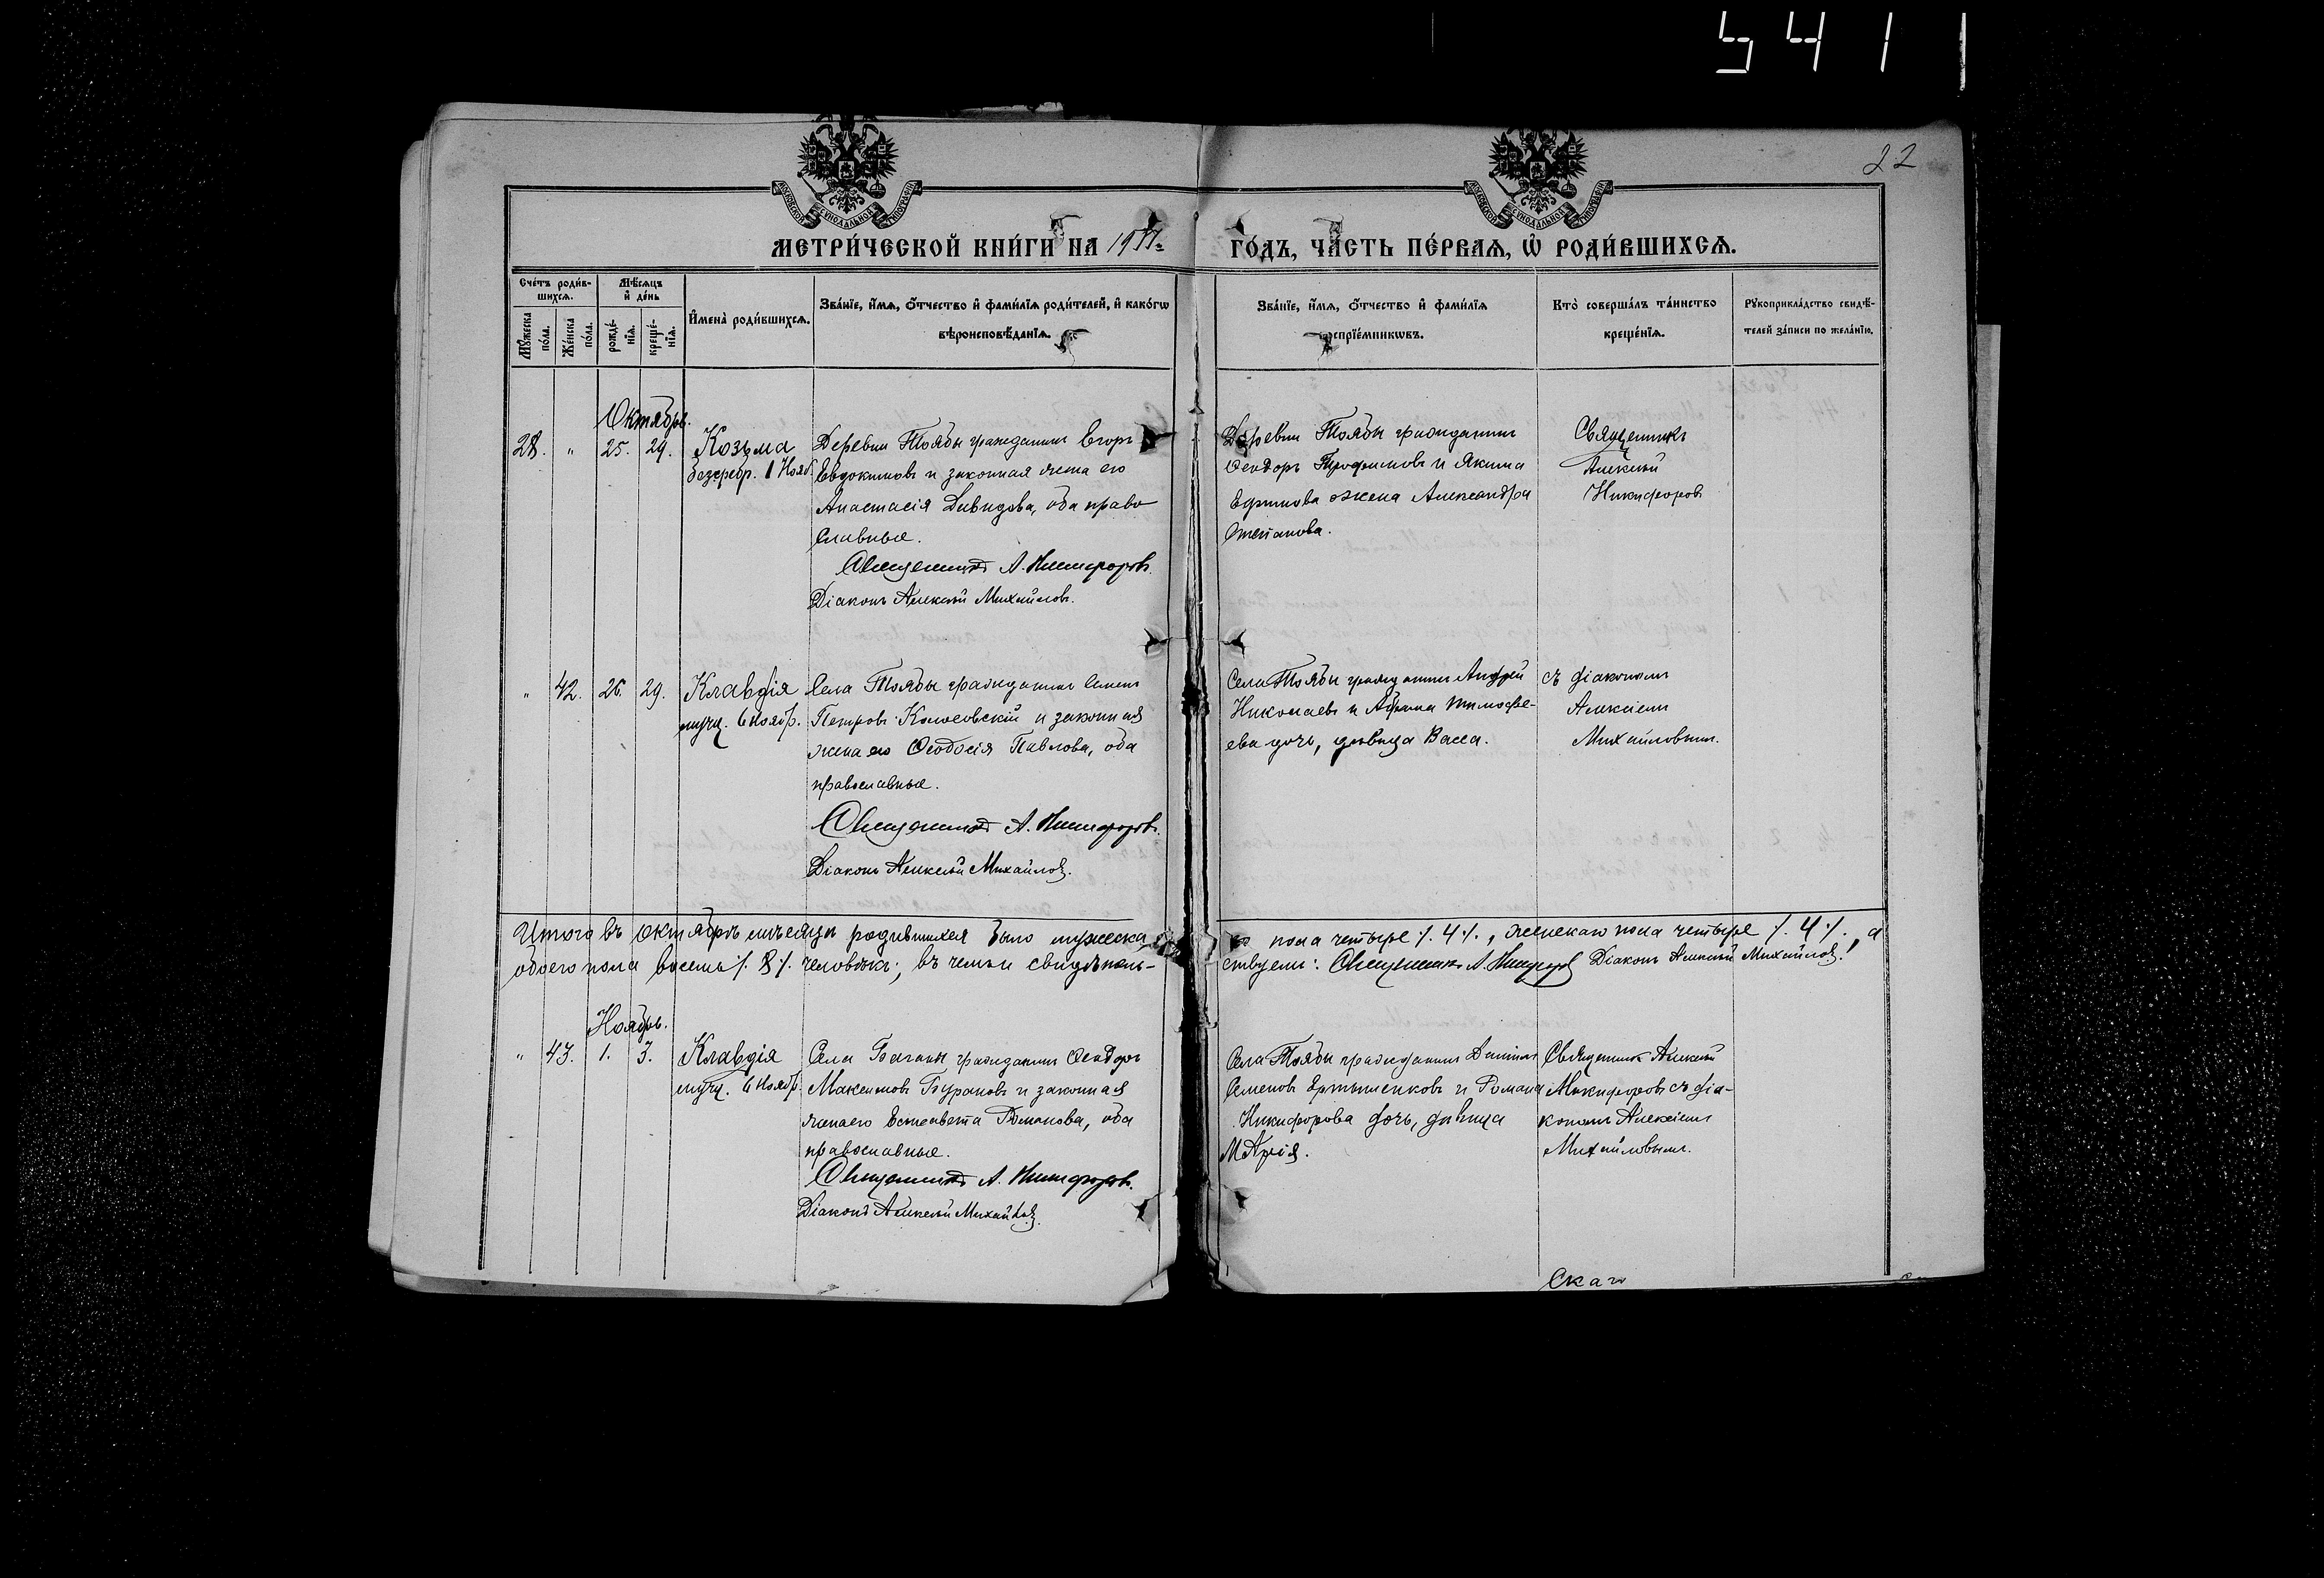 5411
22
МОСКОВСКОЙ СѴНОДАЛЬНОЙ ТИПОГРАФІИ
МОСКОВСКОЙ СѴНОДАЛЬНОЙ ТИПОГРАФІИ
МЕТРИ́ЧЕСКОЙ КНИ́ГИ НА 1917 г. ГО́ДЪ, ЧА́СТЬ ПЕ́РВАЯ, Ѡ҆ РОДИ́ВШИХСѦ.
Сче́тъ роди́в-
шихсѧ.
Мꙋ́жеска по́ла.
Же́нска по́ла.
Мѣ́сѧцъ и҆ де́нь
рожде́-нїѧ.
креще́-нїѧ.
И҆мена̀ роди́вшихсѧ.
Зва́нїе, и҆́мѧ, ѻ҆́тчество и҆ фами́лїѧ роди́телей, и҆ како́гѡ
вѣроисповѣ́данїѧ.
Зва́нїе, и҆́мѧ, ѻ҆́тчество и҆ фами́лїѧ
воспрїе́мникѡвъ.
Кто̀ соверша́лъ та́инство
креще́нїѧ.
Рꙋкоприкла́дство свидѣ́-
телей за́писи по жела́нїю.
Октябрь.
28. " 25. 29. Козьма
безсребр. 1 Нояб.
Деревни Тоябы гражданинъ Егоръ
Евдокимовъ и законная жена его
Анастасія Давидова, оба право
славные.
Священникъ А. Никифоровъ.
Діаконъ Алексѣй Михайловъ.
Деревни Тоябы гражданинъ
Ѳеодоръ Трофимовъ и Якима
Ефимова жена Александра
Степанова.
Священникъ
Алексѣй
Никифоровъ
" 42. 26. 29. Клавдія
муч. 6 Ноябр.
Села Тоябы гражданинъ Семенъ
Петровъ и законная
жена его Ѳеодосія Павлова, оба
православные.
Священникъ А. Никифоровъ.
Діаконъ Алексѣй Михайловъ.
Села Тоябы гражданинъ Андрей
Николаевъ и Абрама Тимофе-
ева дочь, дѣвица Васса.
съ діакономъ
Алексіемъ
Михайловымъ.
Итого въ октябрѣ мѣсяцѣ родившихся было мужеска
го пола четыре ./. 4 ./. , женскаго пола четыре ./. 4 ./. , а
обоего пола восемь ./. 8 ./. человѣкъ; въ чемъ и свидѣтель-
ствуемъ: Священникъ А. Никифоровъ Діаконъ Алексѣй Михайловъ.
Ноябрь.
" 43. 1. 3. Клавдія
муч. 6 Ноябр.
Села гражданинъ Ѳеодоръ
Максимовъ Бурановъ и законная
жена его Елисавета Романова, оба
православные.
Священникъ А. Никифоровъ.
Діаконъ Алексѣй Михайловъ.
Села Тоябы гражданинъ Даніилъ
Семеновъ и Романа
Никифорова дочь, дѣвица
Марія.
Священникъ Алексѣй
Никифоровъ съ діа-
кономъ Алексіемъ
Михайловымъ.